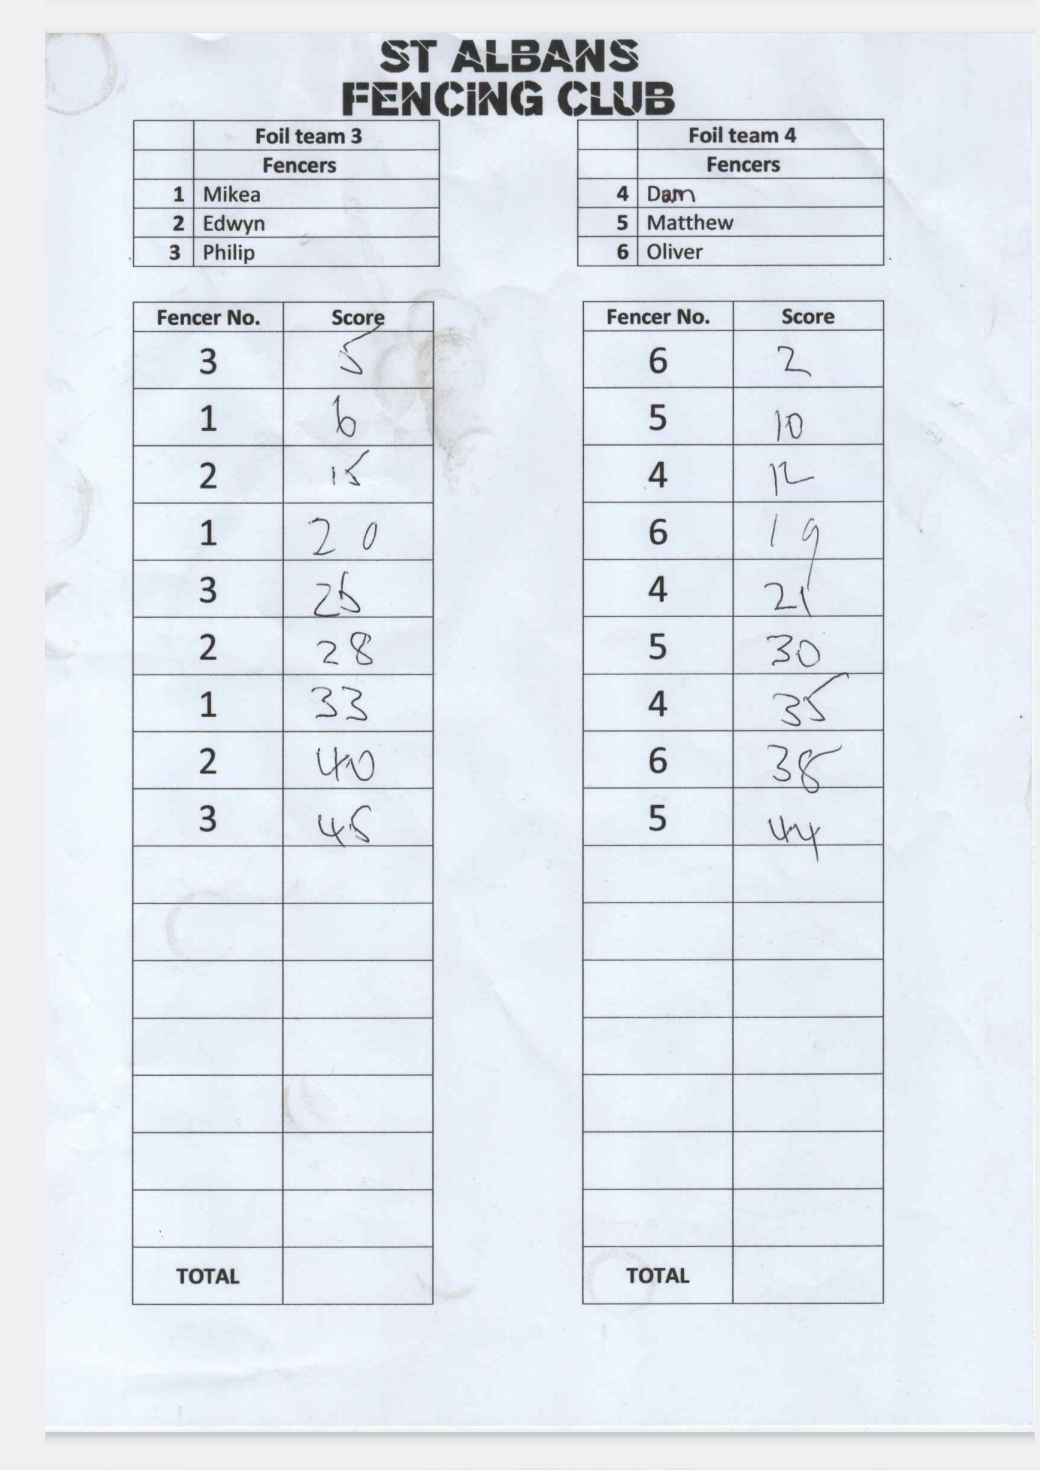 ST ALBANS
FENCING CLUB
Foil team 3 Foil team 4
Fencers Fencers
1 Mikea 4 Dam
2 Edwyn 5 Matthew
3 Philip 6 Oliver
Fencer No. Score Fencer No. Score
3 5 6 2
1 6 5 10
2 15 4 12
1 20 6 19
3 25 4 21
2 28 5 30
1 33 4 35
2 40 6 38
3 45 5 44
TOTAL TOTAL